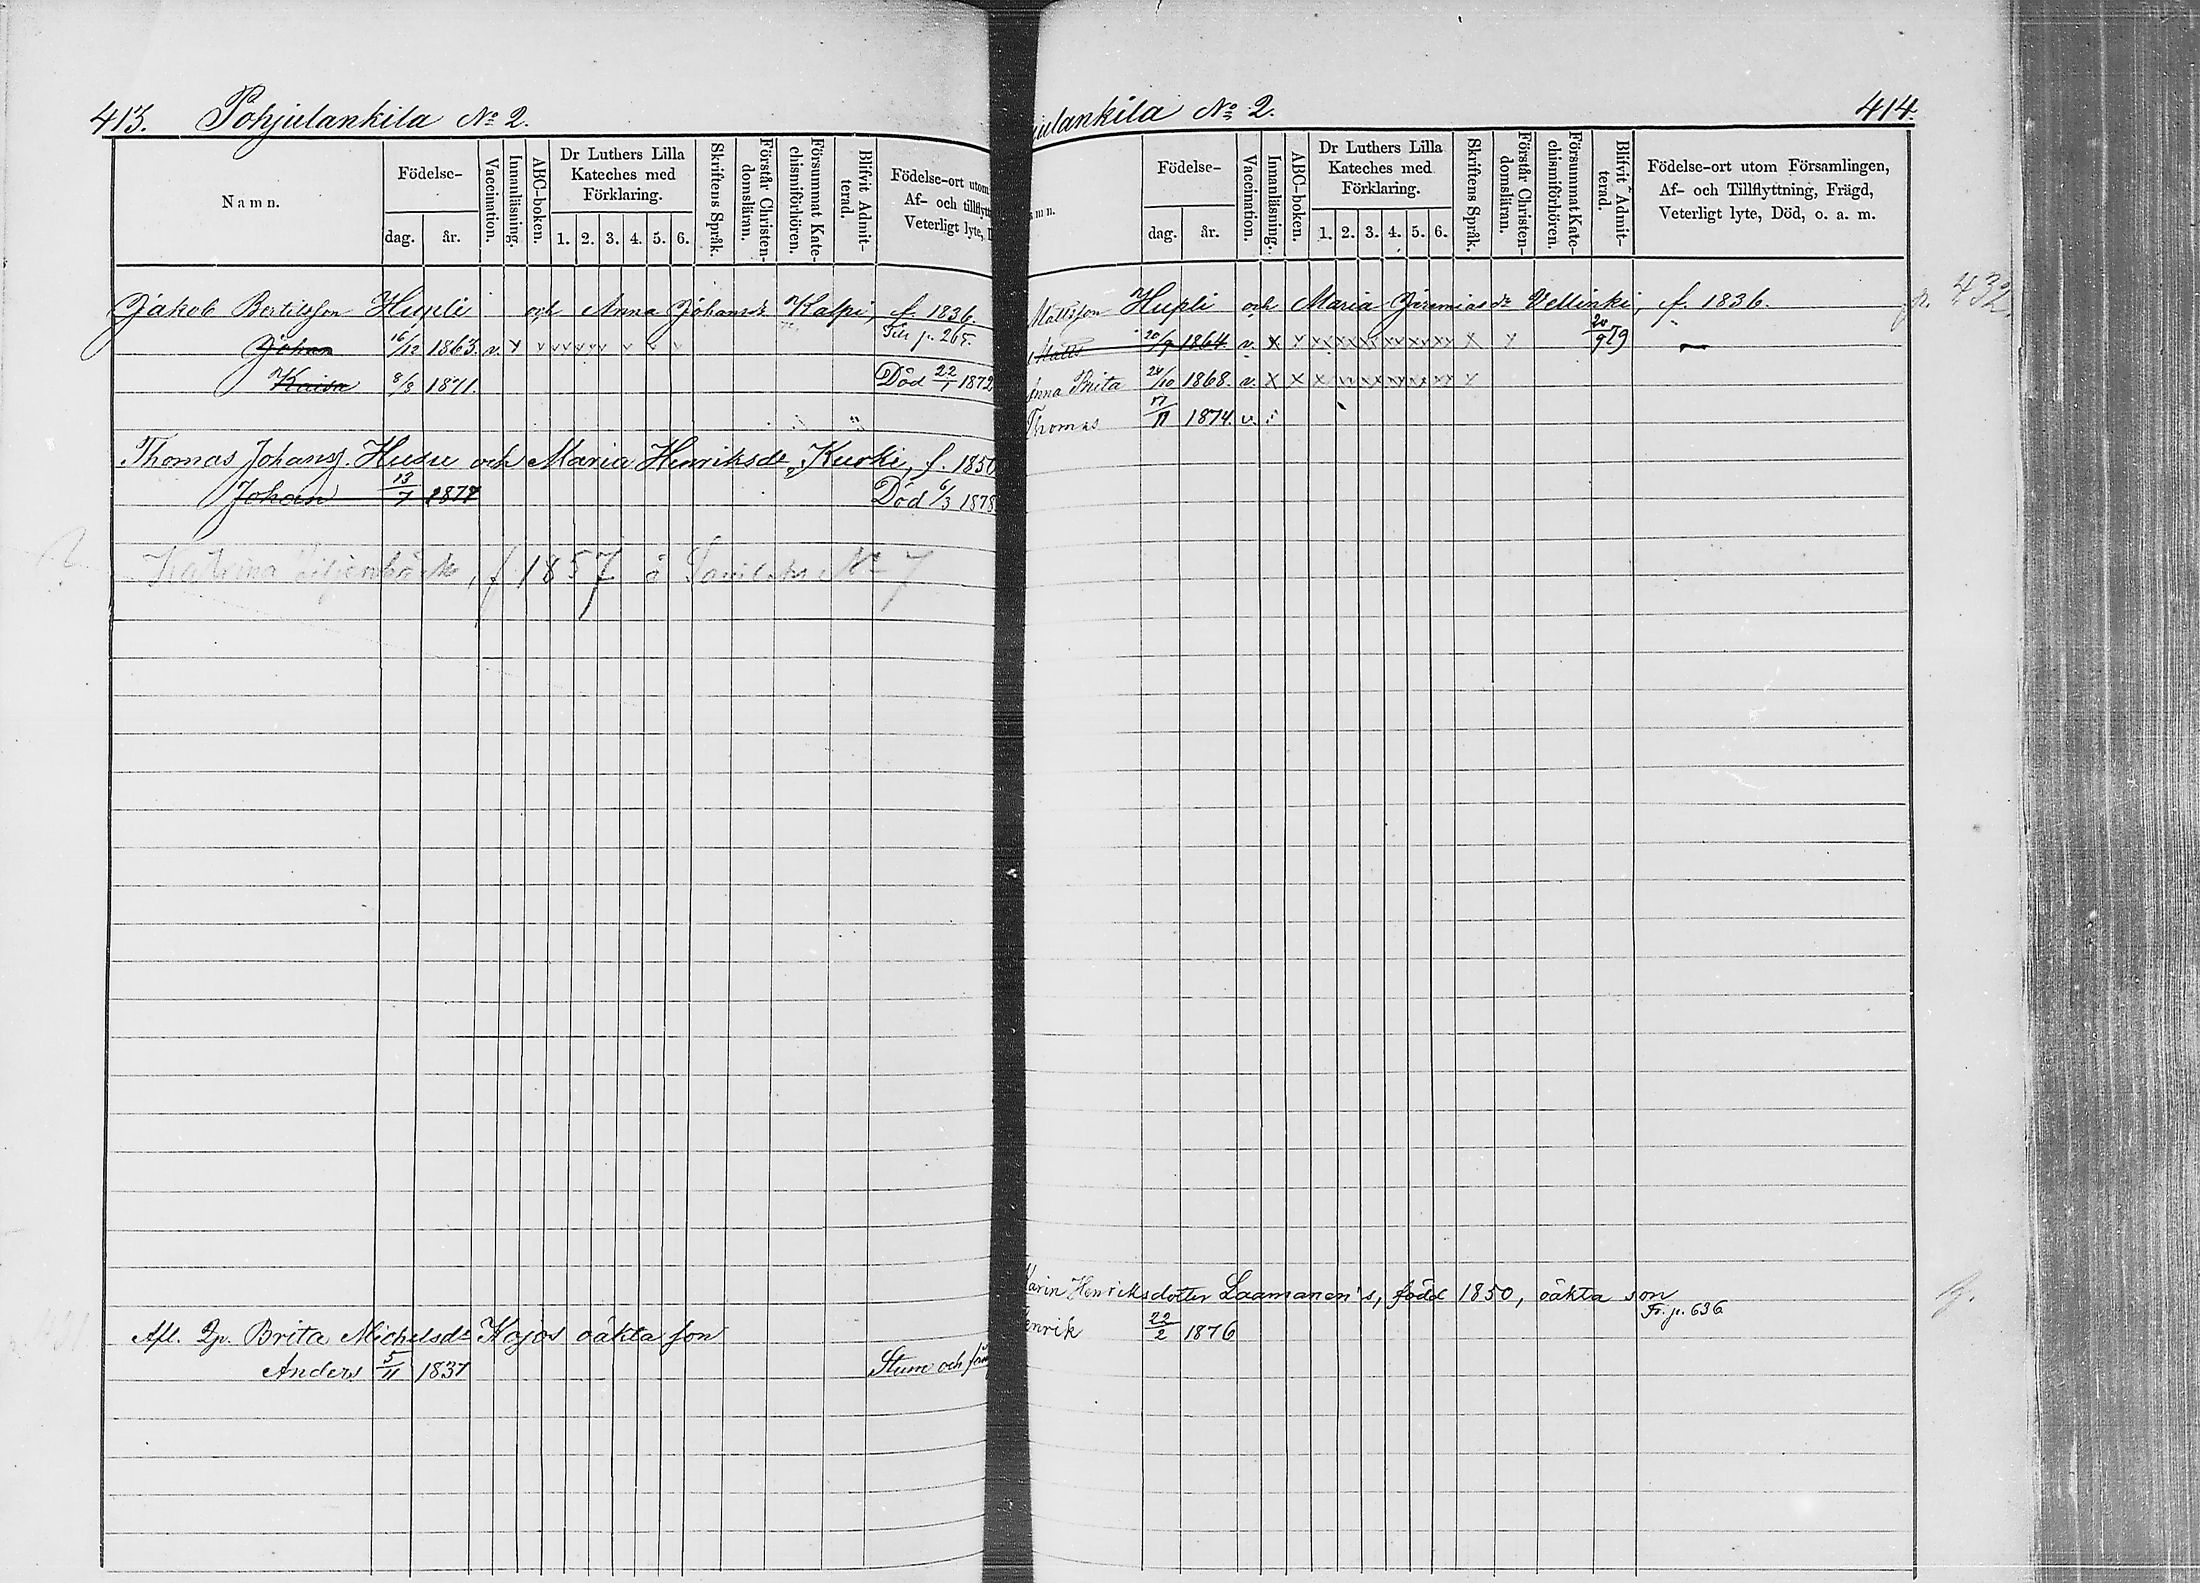 413. Pohjulankila No 2.
Namn.
Födelse-
dag. år.
Vaccination.
Innanläsning.
ABC-boken.
Dr Luthers Lilla
Kateches med
Förklaring.
1. 2. 3. 4. 5. 6.
Skriftens Språk.
Förstår Christen-
domsläran.
Försummat Kate-
chismiförhören.
Blifvit Admit-
terad.
Födelse-ort utom
Af- och tillflytt
Veterligt lyte, D
Jakob Bertilsson Hupli och Anna Johansdr Kalpi, f. 1836
Johan 16/12 1863. v. x v x x x x x v v Till p. 265.
Kaisa 8/3 1871. Död 22/1 1872
Thomas Johanss. Husu och Maria Henriksdr Kurki, f. 1850
Johan 13/7 1877 Död 6/3 1878
Katrina f 1857 å No 7
Afl. Brita Michelsdr Kojos oäkta son
Anders 5/11 1837 Stum och
ulankila No 2. 414.
mn.
Födelse-
dag. år.
Vaccination.
Innanläsning.
ABC-boken.
Dr Luthers Lilla
Kateches med
Förklaring.
1. 2. 3. 4. 5. 6.
Skriftens Språk.
Förstår Christen-
domsläran.
Försummat Kate-
chismiförhören.
Blifvit Admit-
terad.
Födelse-ort utom Församlingen,
Af- och Tillflyttning, Frägd,
Veterligt lyte, Död, o. a. m.
Mattsson Hupli och Maria Jeremiasdr Vellinki, f. 1836. p. 432.
Matts 20/9 1864. v. x x x x x x x x x x x x x 20/9 79
Anna Brita 24/10 1868. v. x x x x x x x x x x x x
Thomas 17/11 1874. v.
Karin Henriksdotter Laamanen's, född 1850, oäkta son
Fr. p. 636
enrik 22/2 1876